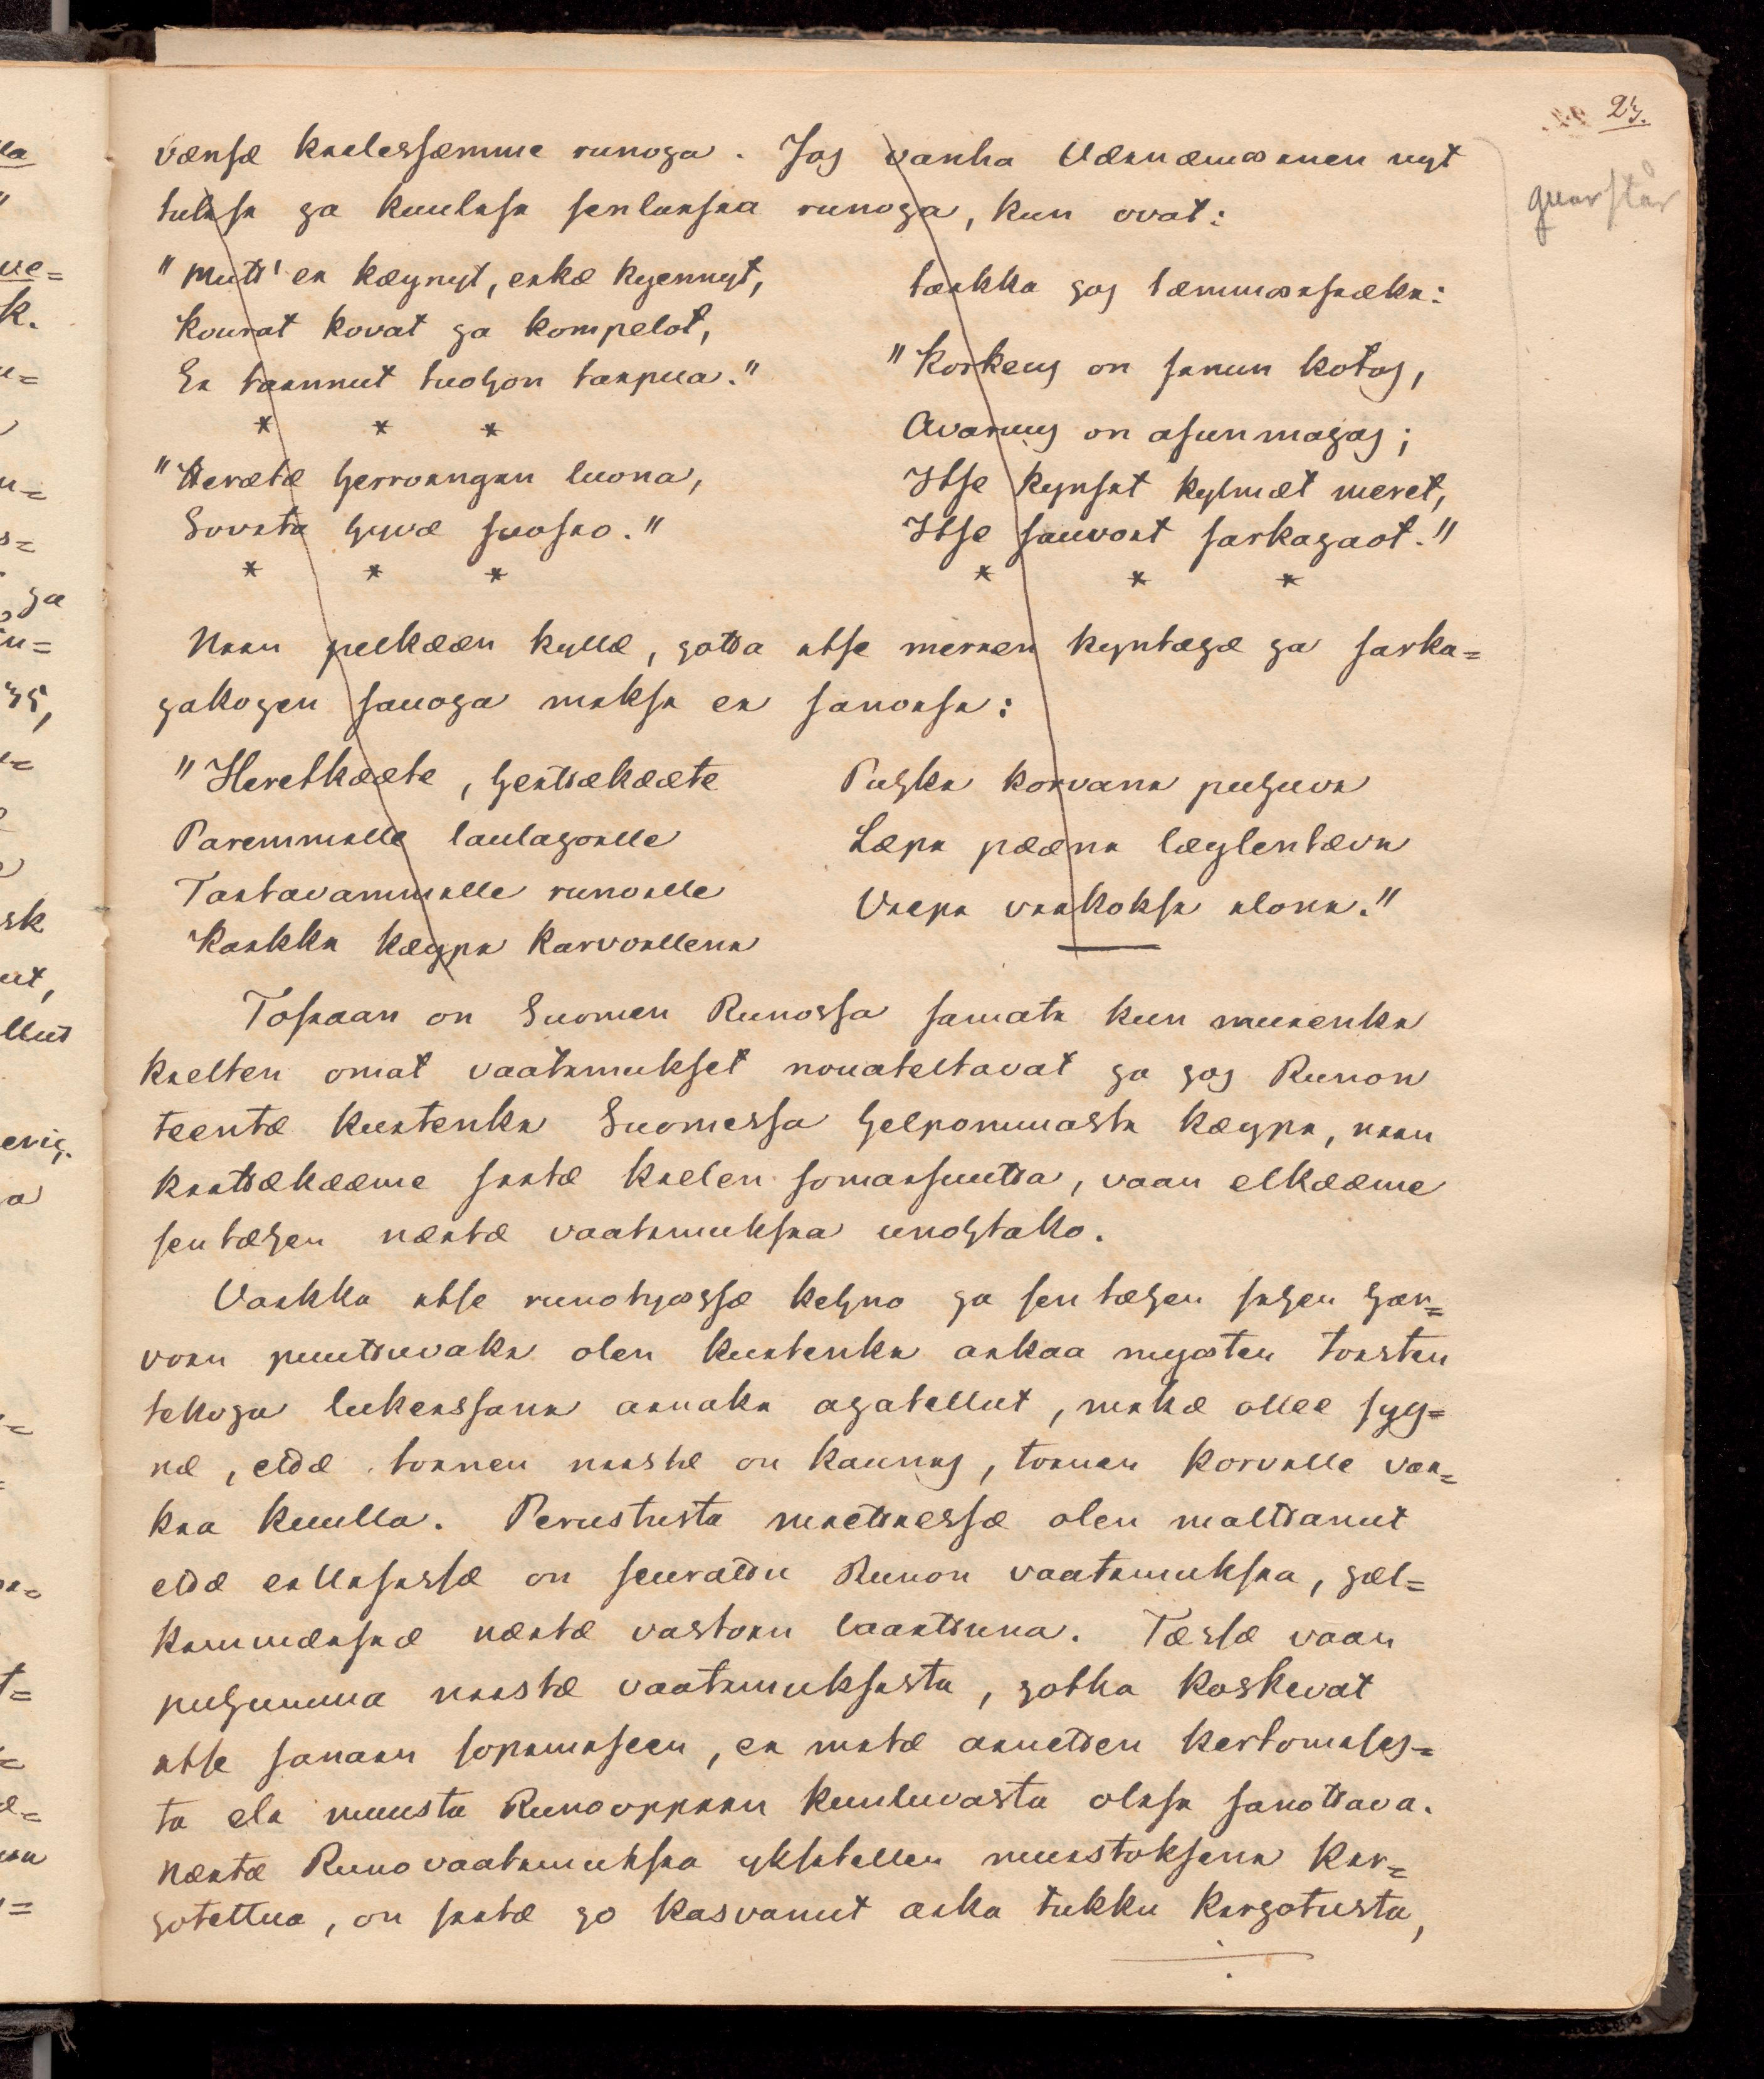 23.
quarstår
vænsæ kielessæmme runoga. Jos vanha Væinæmœinen nyt
tulisi ga kuulisi senlaisia runoga, kun ovat:
"Mutt' ei kæynyt, eikæ kyennyt,
Kourat kovat ga kompelot,
Ei tainnut tuohon taipua."
* * *
"Herætæ herroingin luona,
Sovita hyvæ suosio."
* * *
taikka gos tæmmœisiæki:
"Korkeus on sinun kotos,
Avaruus on asunmagas;
Itse kynsit kylmæt meret,
Itse sauvoit sarkagaot."
* * *
Niin pelkææn kyllæ, gotta itse merien kyntægæ ga sarka=
gakogen sauoga miksi ei sanoisi:
"Heretkææte, heittækææte
Paremmille laulagoille
Taitavammille runoille
Kaikki kæypi karvoilleni
Puhki korvani puhuvi
Læpi pææni læylentævi
Vaepi viikoksi iloni."
Tosiaan on Suomen Runossa samati kun muienki
kielten omat vaatimukset nouateltavat ga gos Runon
teentæ kuitenki Suomessa helpommasti kæypi, niin
kiittækææme siitæ kielen somaisuutta, vaan elkææme
sentæhen næitæ vaatimuksia unohtako.
Vaikka itse runotyœssæ kehno ga sentæhen sihen har=
voin puuttuvaki olen kuitenki aikaa myœten toisten
tekoga lukeissani ainaki agatellut, mikæ ollee syy=
næ, ettæ toinen niistæ on kaunis, toinen korville vai=
kia kuulla. Perustusta miettiessæ olen malttanut
ettæ eillisissæ on seurattu Runon vaatimuksia, gæl=
kimmæisiæ næitæ vastoin laaittuna. Tæssæ vaan
puhumma niistæ vaatimuksista, gotka koskevat
itse sanain sopimiseen, ei mitæ ainetten kertomises=
ta eli muusta Runooppiin kuuluvasta olisi sanottava.
Næitæ Runovaatimuksia yksitellen muistokseni kir=
gotettua, on siitæ go kasvanut aika tukku kirgotusta,